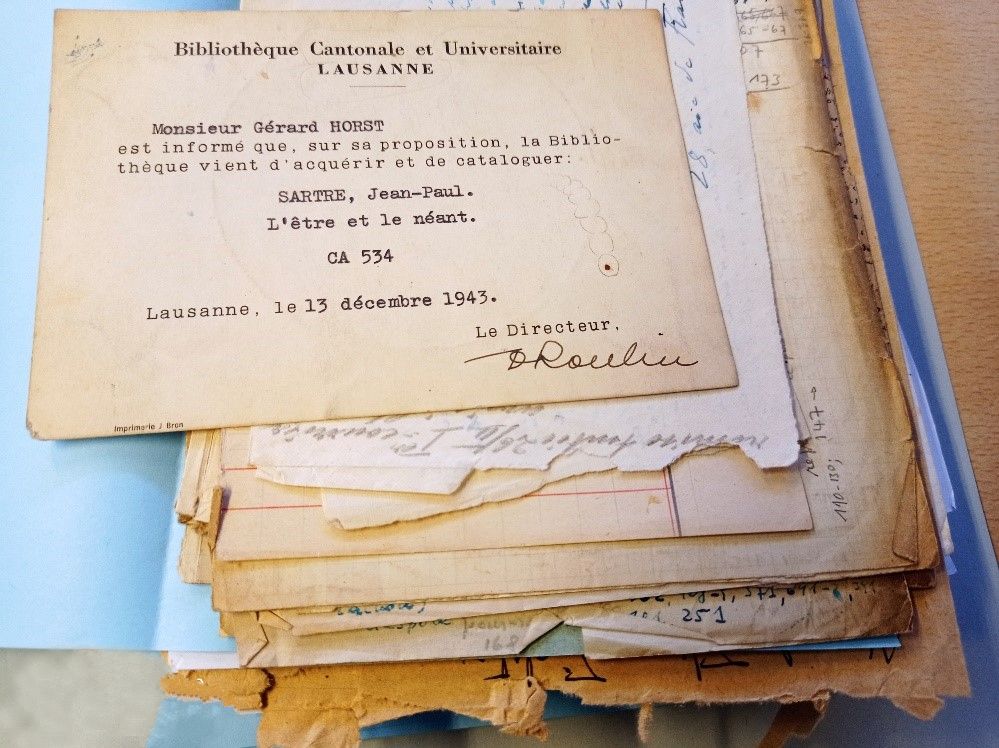 Bibliothèque Cantonale et Universitaire
LAUSANNE
Monsieur Gérard HORST
est informé que, sur sa proposition, la Biblio-
thèque vient d'acquérir et de cataloguer:
SARTRE, Jean-Paul.
L'être et le néant.
CA 534
Lausanne, le 13 décembre 1943.
Le Directeur,
DRoulin
Imprimerie J Bron
65-67
173
28, rue de
147 →
110-130;
251
168